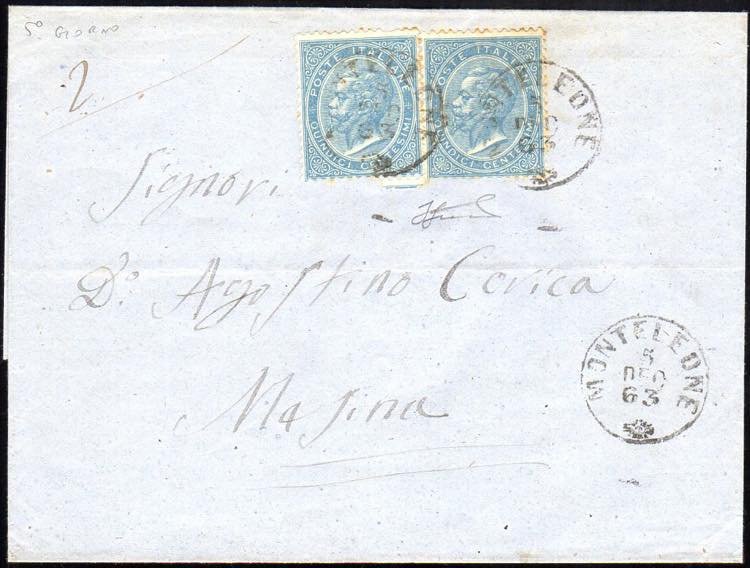 5° GIORNO
2
POSTE ITALIANE
QUINDICI CENTESIMI
POSTE ITALIANE
QUINDICI CENTESIMI
MONTELEONE
Signori
Do. Agostino Corica
Masina
MONTELEONE
5
DEC
63